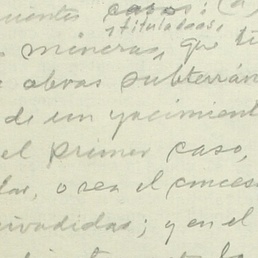 uientes casos: (a)
, tituladas,
s mineras, que ti
e obras subterrán
de un yacimient
el primer caso,
lar, o sea el conces
rivadidas; y en el